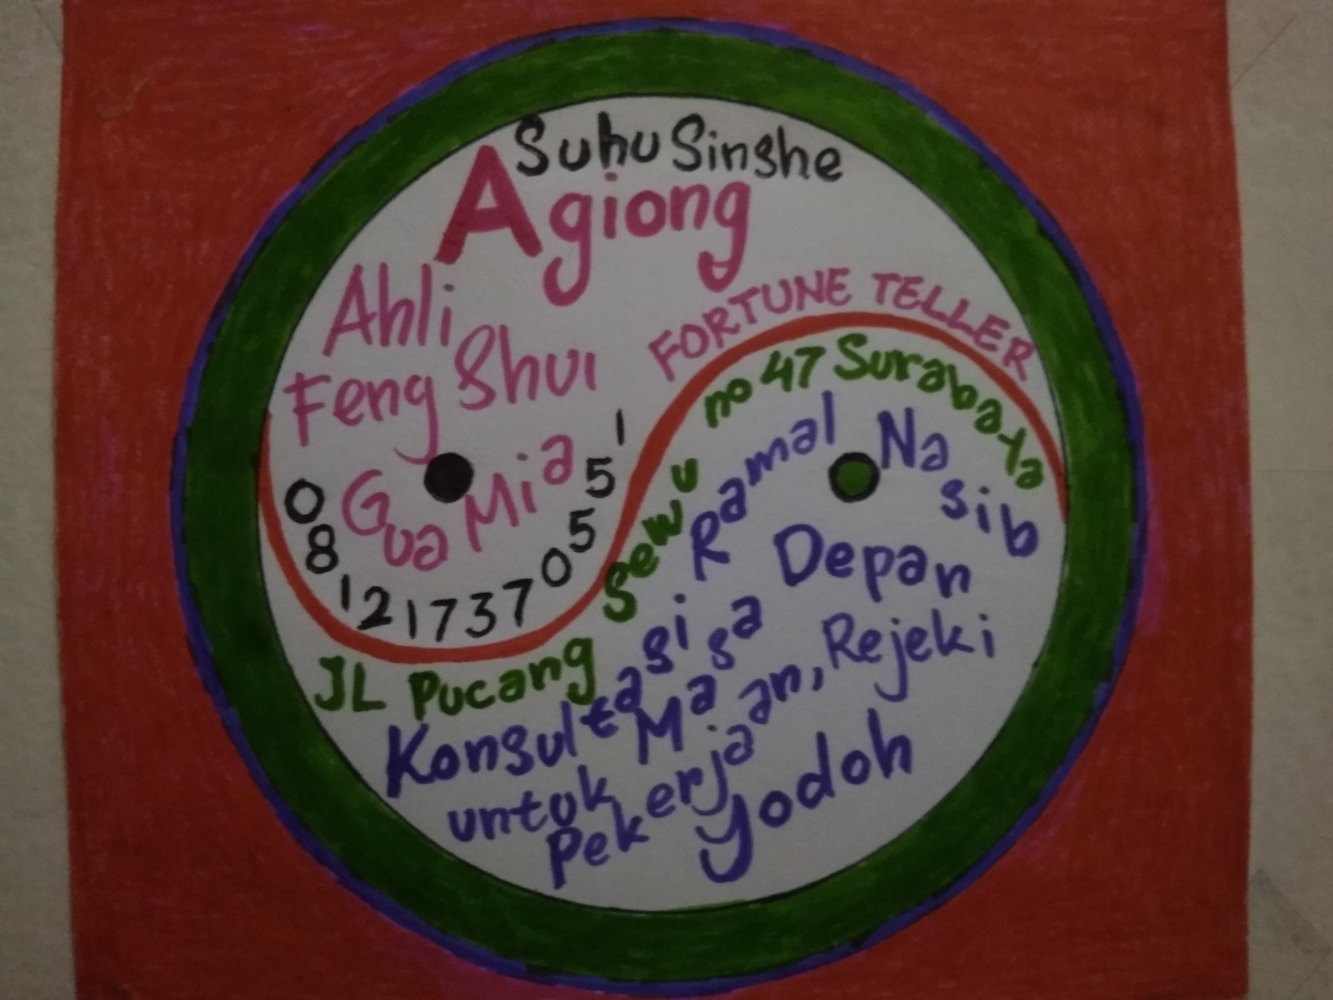 Suhu Singhe
Agiong
Ahli
Feng Shui
Gua Mia
081217370551
FORTUNE TELLER
JL Pucang Sewu no 47 Surabaya
Konsultasi Ramal Nasib
untuk Masa Depan
Pekerjaan, Rejeki
yodoh